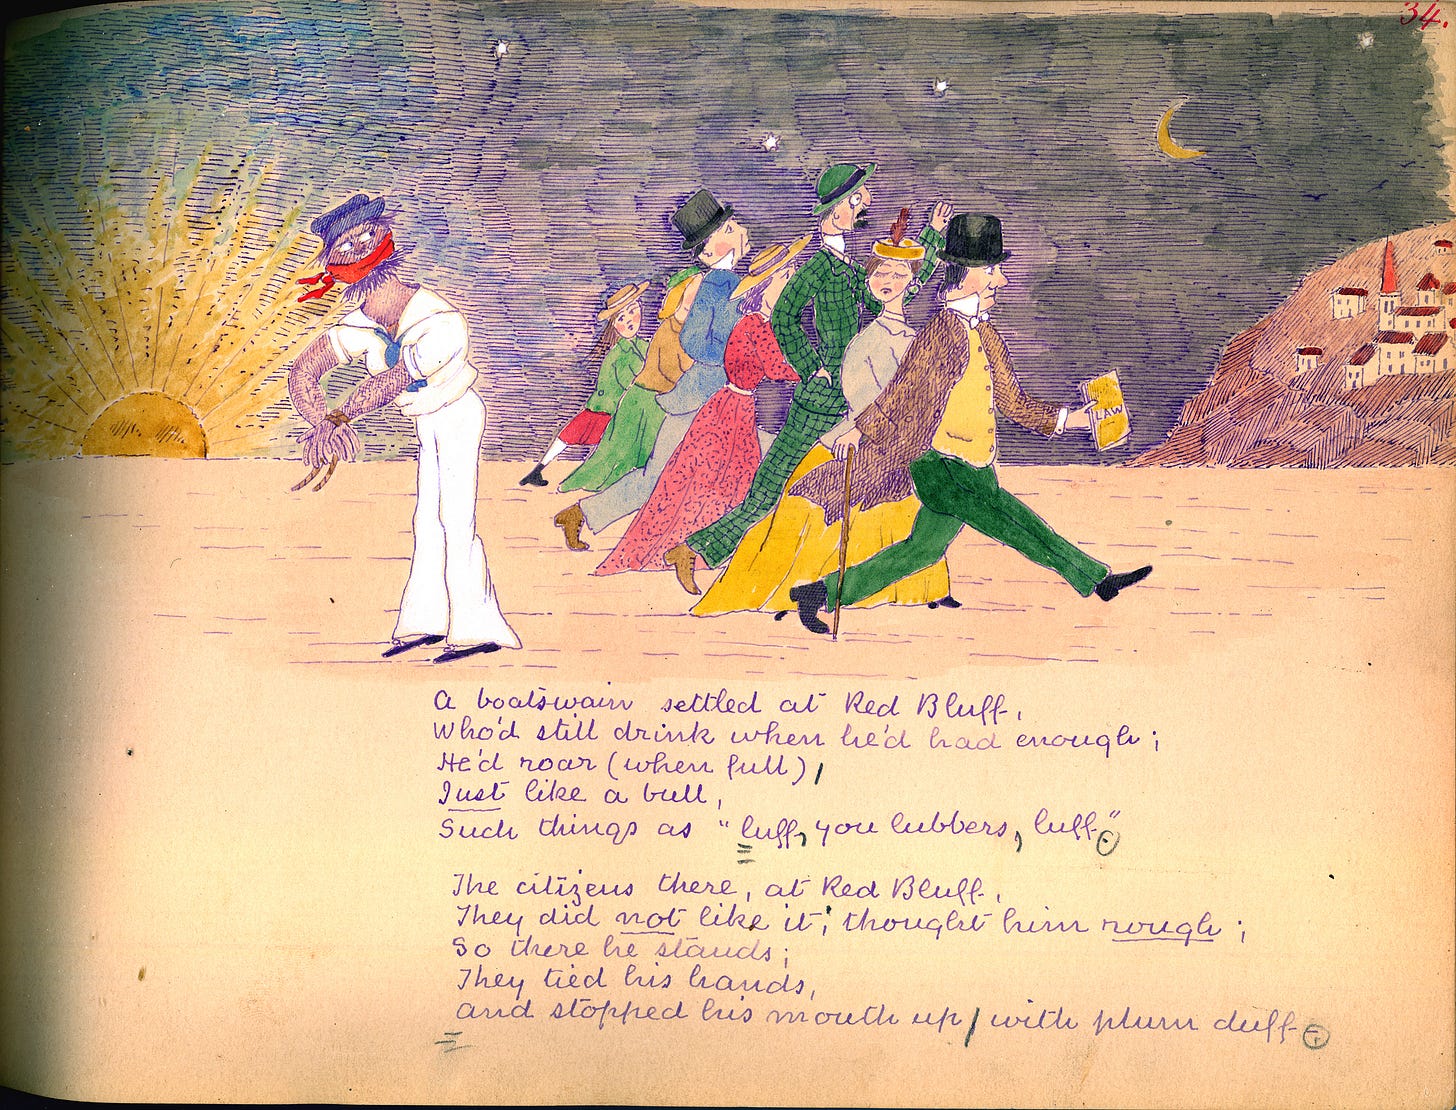 34.
LAW
A boatswain settled at Red Bluff,
Who'd still drink when he'd had enough;
He'd roar (when full),
Just like a bull,
Such things as "luff, you lubbers, luff."
The citizens there, at Red Bluff,
They did not like it; thought him rough;
So there he stands;
They tied his hands,
and stopped his mouth up/with plum duff.